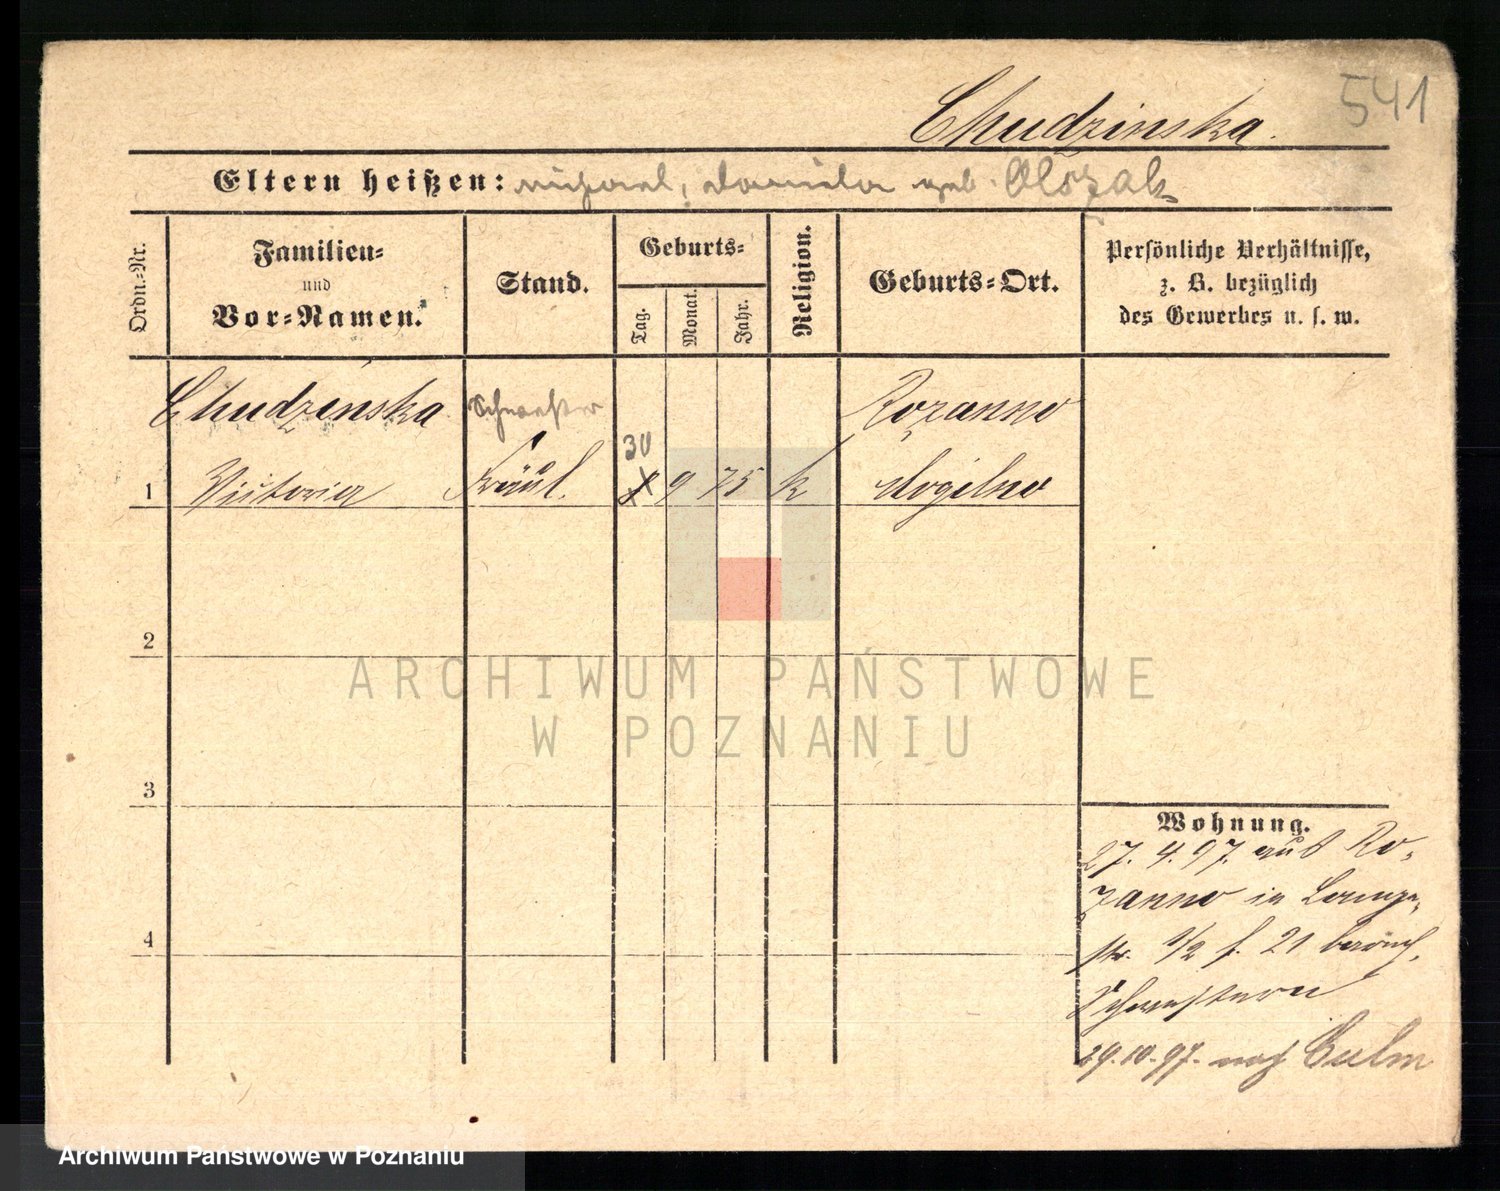 541
Chudzinska.
Eltern heißen: Michael, Daniela geb. Olszak
Ordn.-Nr.
Familien-
und
Vor-Namen.
Stand.
Geburts-
Tag.
Monat.
Jahr.
Religion.
Geburts-Ort.
Persönliche Verhältnisse,
z. B. bezüglich
des Gewerbes u. s. w.
Chudzinska Schwester Rozanno
30
1 Victoria Fräul. 9 75 k Mogilno
2
3
4
Wohnung.
27. 4. 97. aus Ro-
zanno in
str. 1/2 f. 21
Schwestern
29.10.97. nach Culm
ARCHIWUM PAŃSTWOWE
W POZNANIU
Archiwum Państwowe w Poznaniu